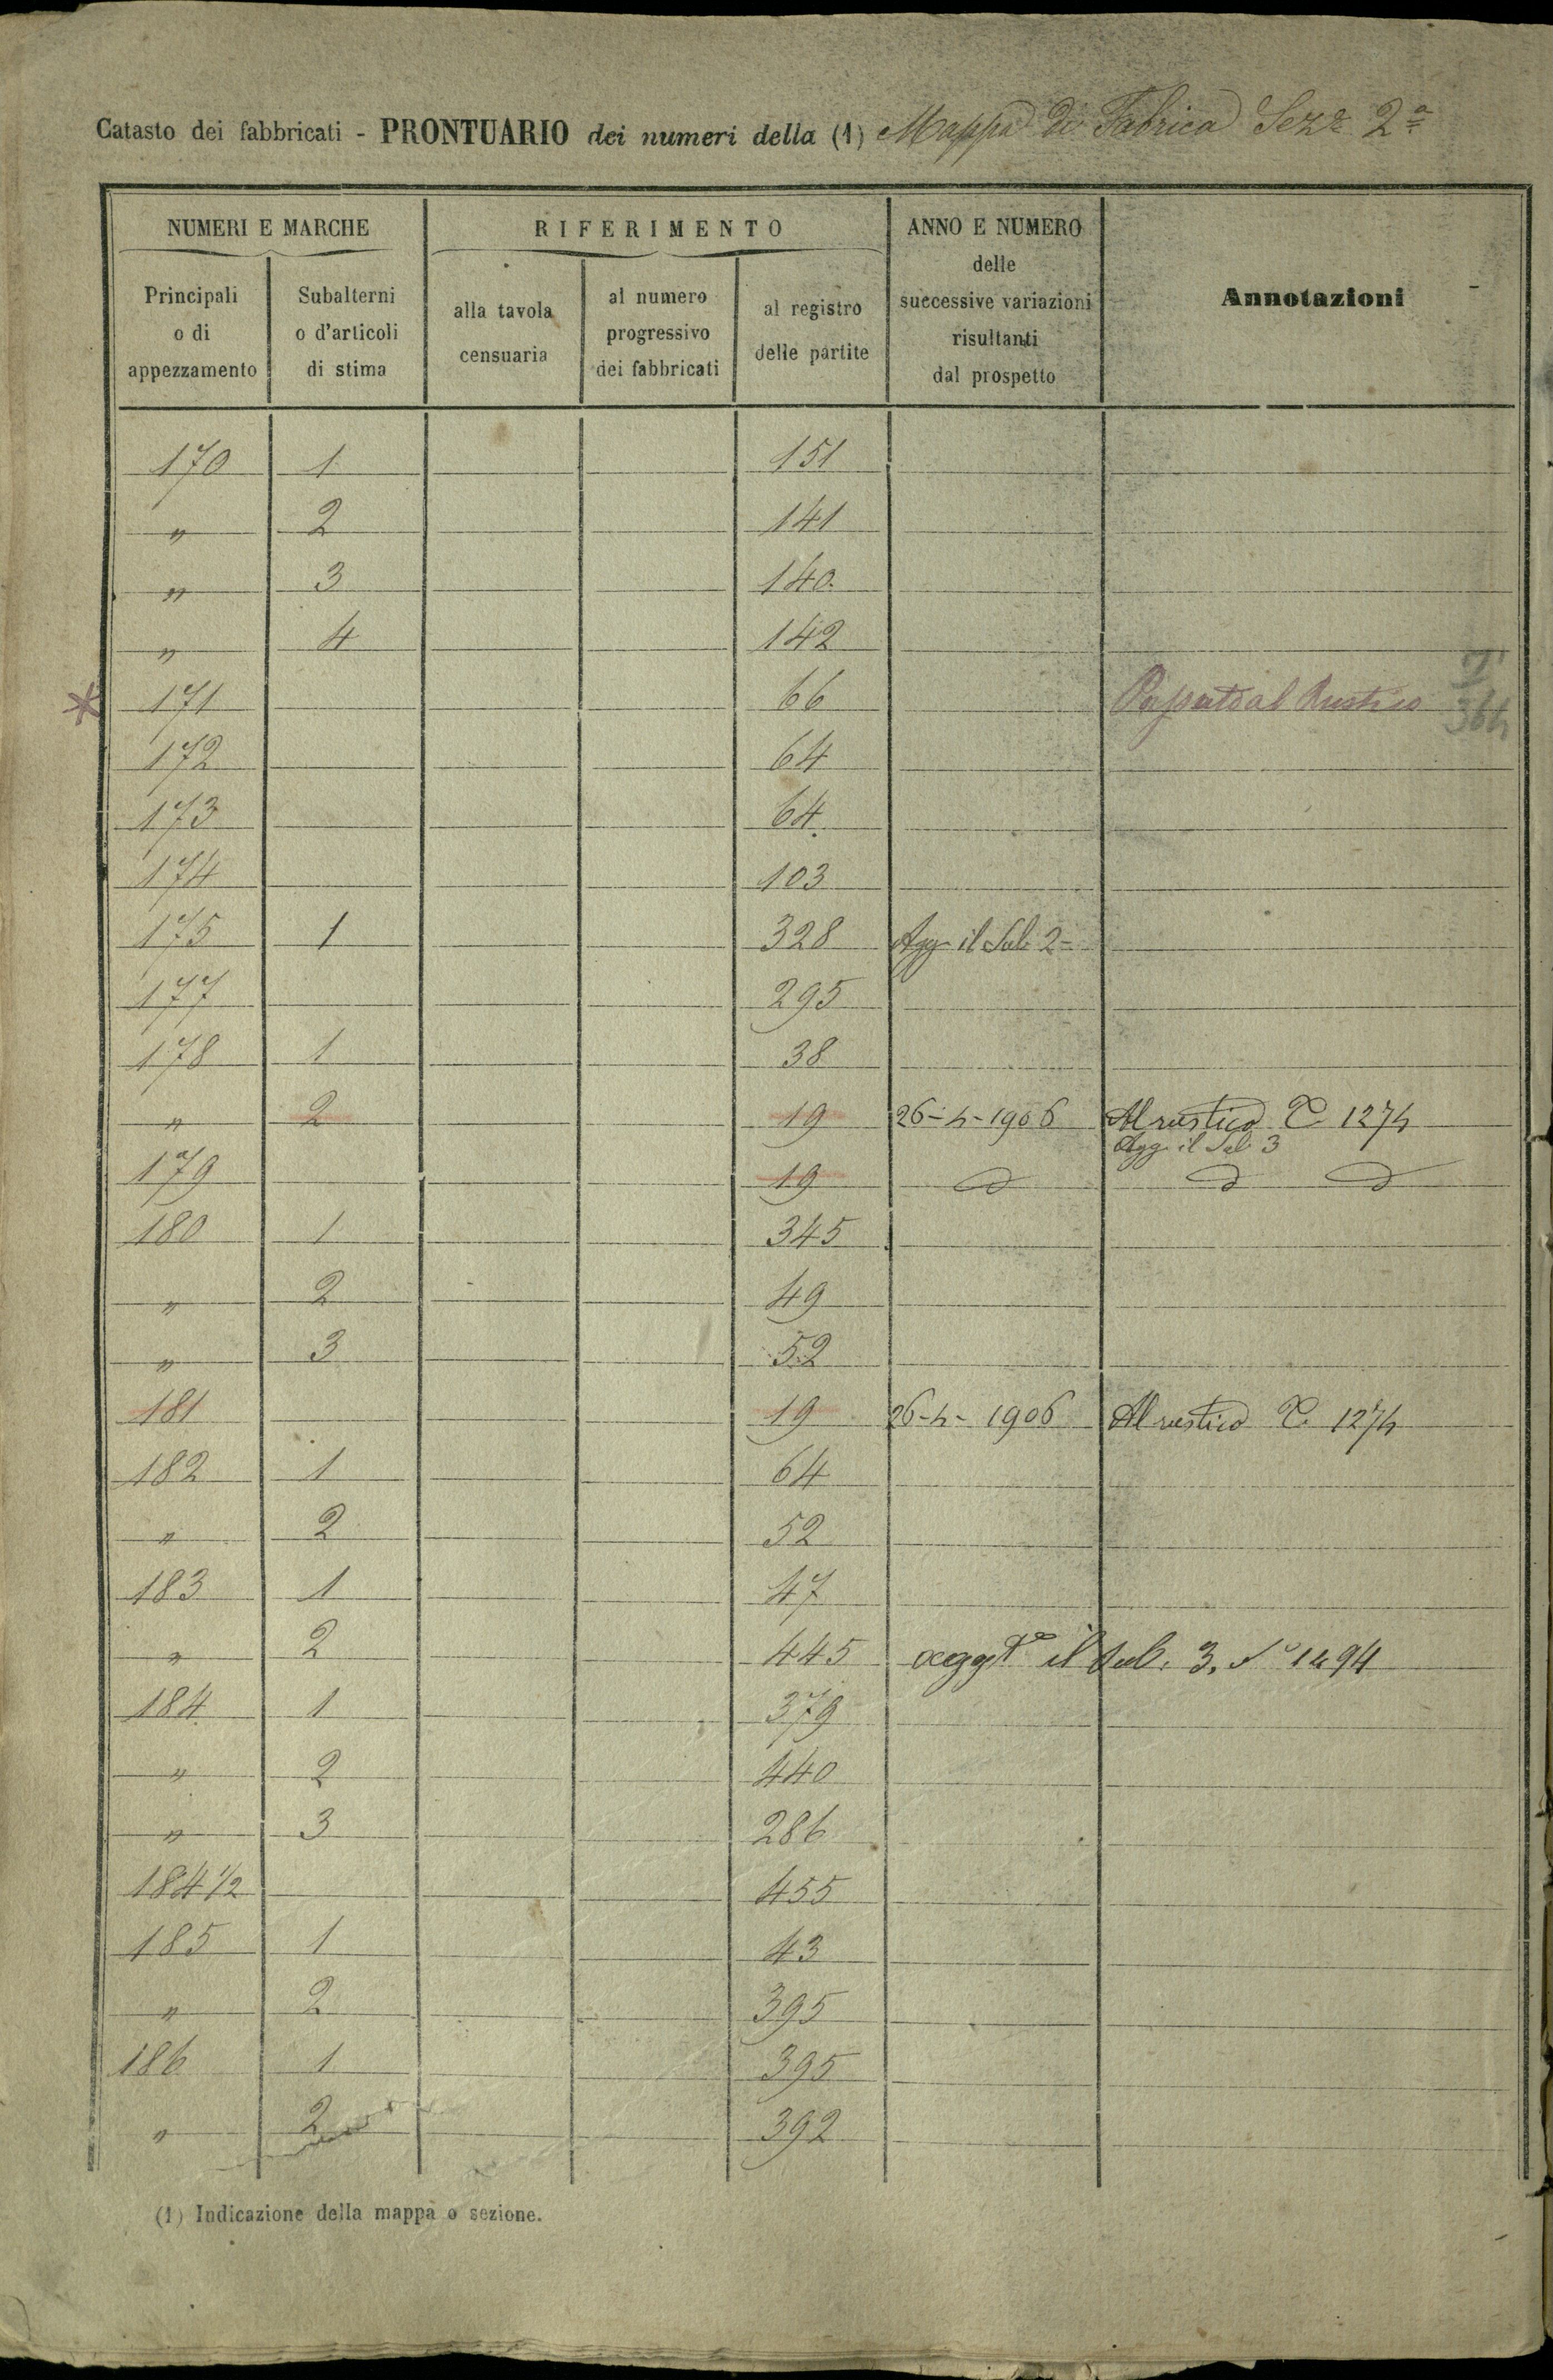 Catasto dei fabbricati - PRONTUARIO dei numeri della (1) Mappa di Fabrica Sezᵉ 2ª
NUMERI E MARCHE
RIFERIMENTO
ANNO E NUMERO
delle
successive variazioni
risultanti
dal prospetto
Annotazioni
Principali
o di
appezzamento
Subalterni
o d'articoli
di stima
alla tavola
censuaria
al numero
progressivo
dei fabbricati
al registro
delle partite
170 1 151
" 2 141
" 3 140.
" 4 142
171 66 Passato al Rustico
172 64
173 64.
174 103
175 1 328 Agg il Sub 2
177 295
178 1 38
" 2 19 26-4-1906 Al rustico 1274
Agg il Sub 3
179 19
180 1 345
" 2 49
" 3 52
181 19 26-4-1906 Al rustico 1274
182 1 64
" 2 52
183 1 47
" 2 445 aggto il Sub. 3. 1494
184 1 379
" 2 440
" 3 286
184 1/2 455
185 1 43
" 2 395
186 1 395
" 2 392
(1) Indicazione della mappa o sezione.